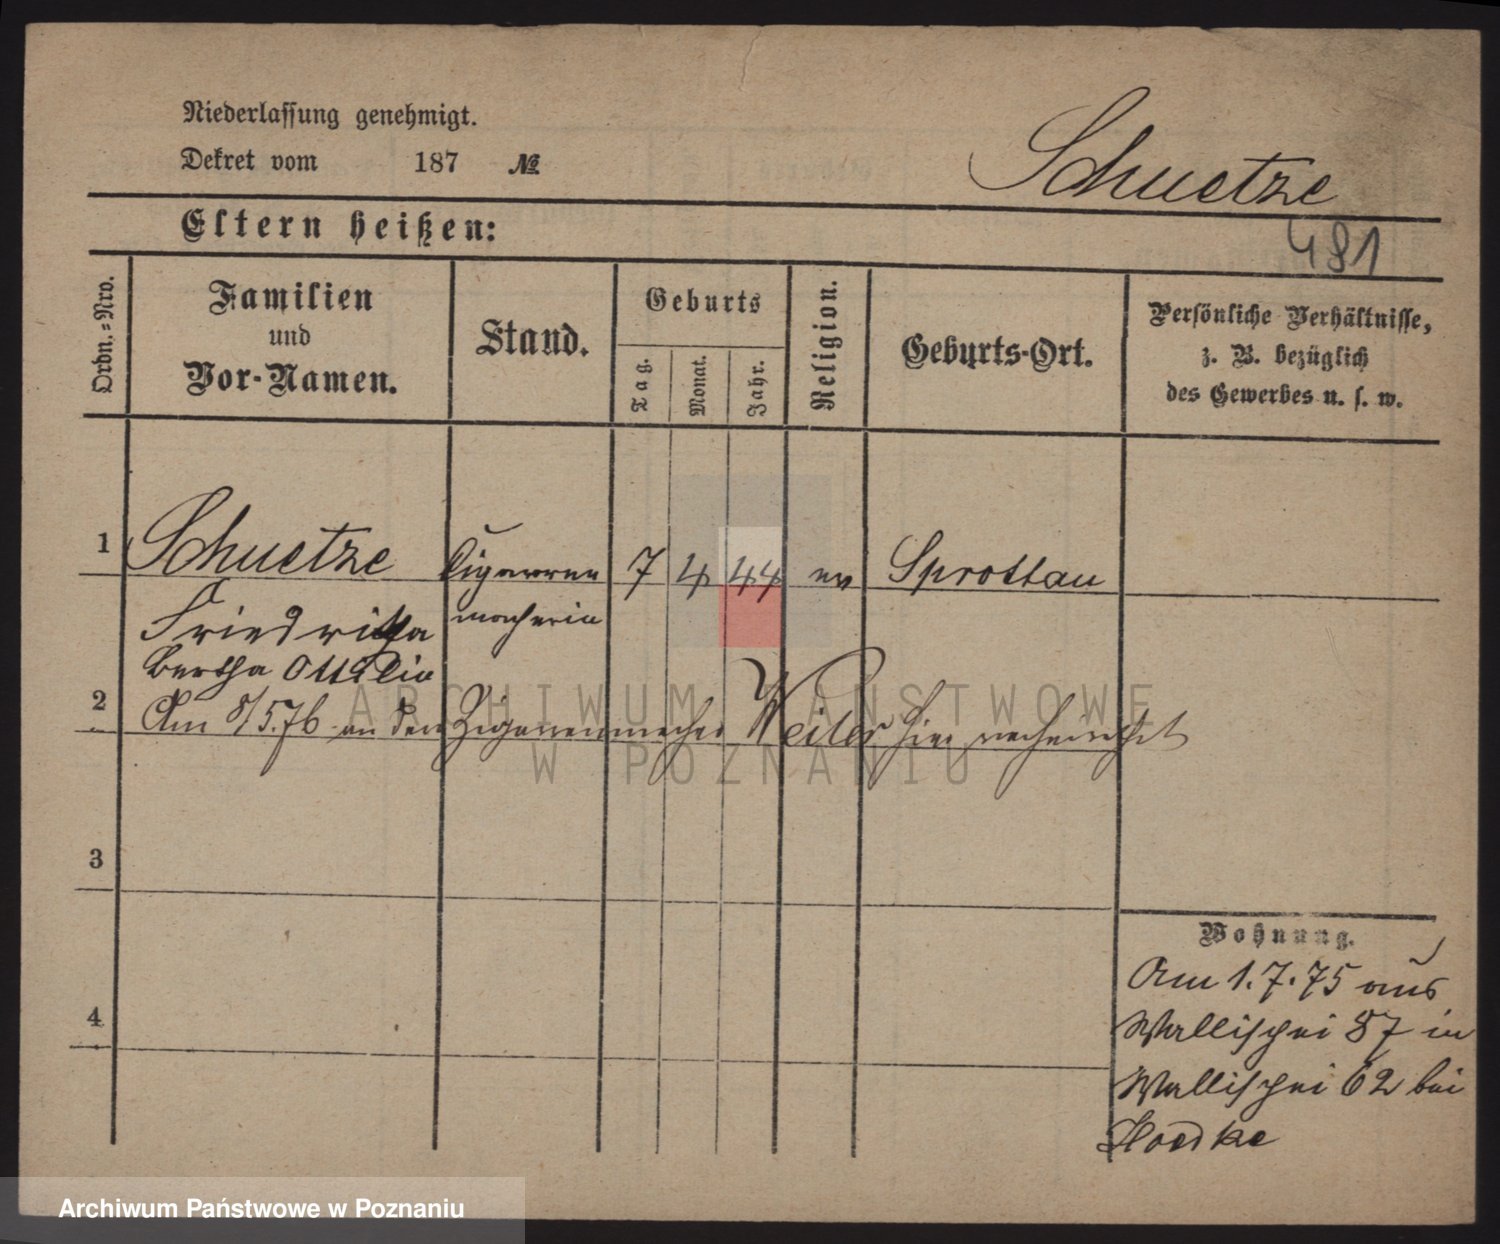 Niederlassung genehmigt.
Dekret vom 187 №
Schuetze
Eltern heißen:
481
Ordn.-Nro.
Familien
und
Vor-Namen.
Stand.
Geburts
Tag.
Monat.
Jahr.
Religion.
Geburts-Ort.
Persönliche Verhältnisse,
z. B. bezüglich
des Gewerbes u. s. w.
1 Schuetze Cigarren 7 4 44 ev Sprottau
Friedrika macherin
Bertha Ottilie
2 Am 8/5.76 an den Zigarrenmacher Weiler hier verheirathet
3
4
Wohnung.
Am 1.7.75 aus
Wallischei 87 in
Wallischei 62 bei
Hoedke
ARCHIWUM PAŃSTWOWE
W POZNANIU
Archiwum Państwowe w Poznaniu